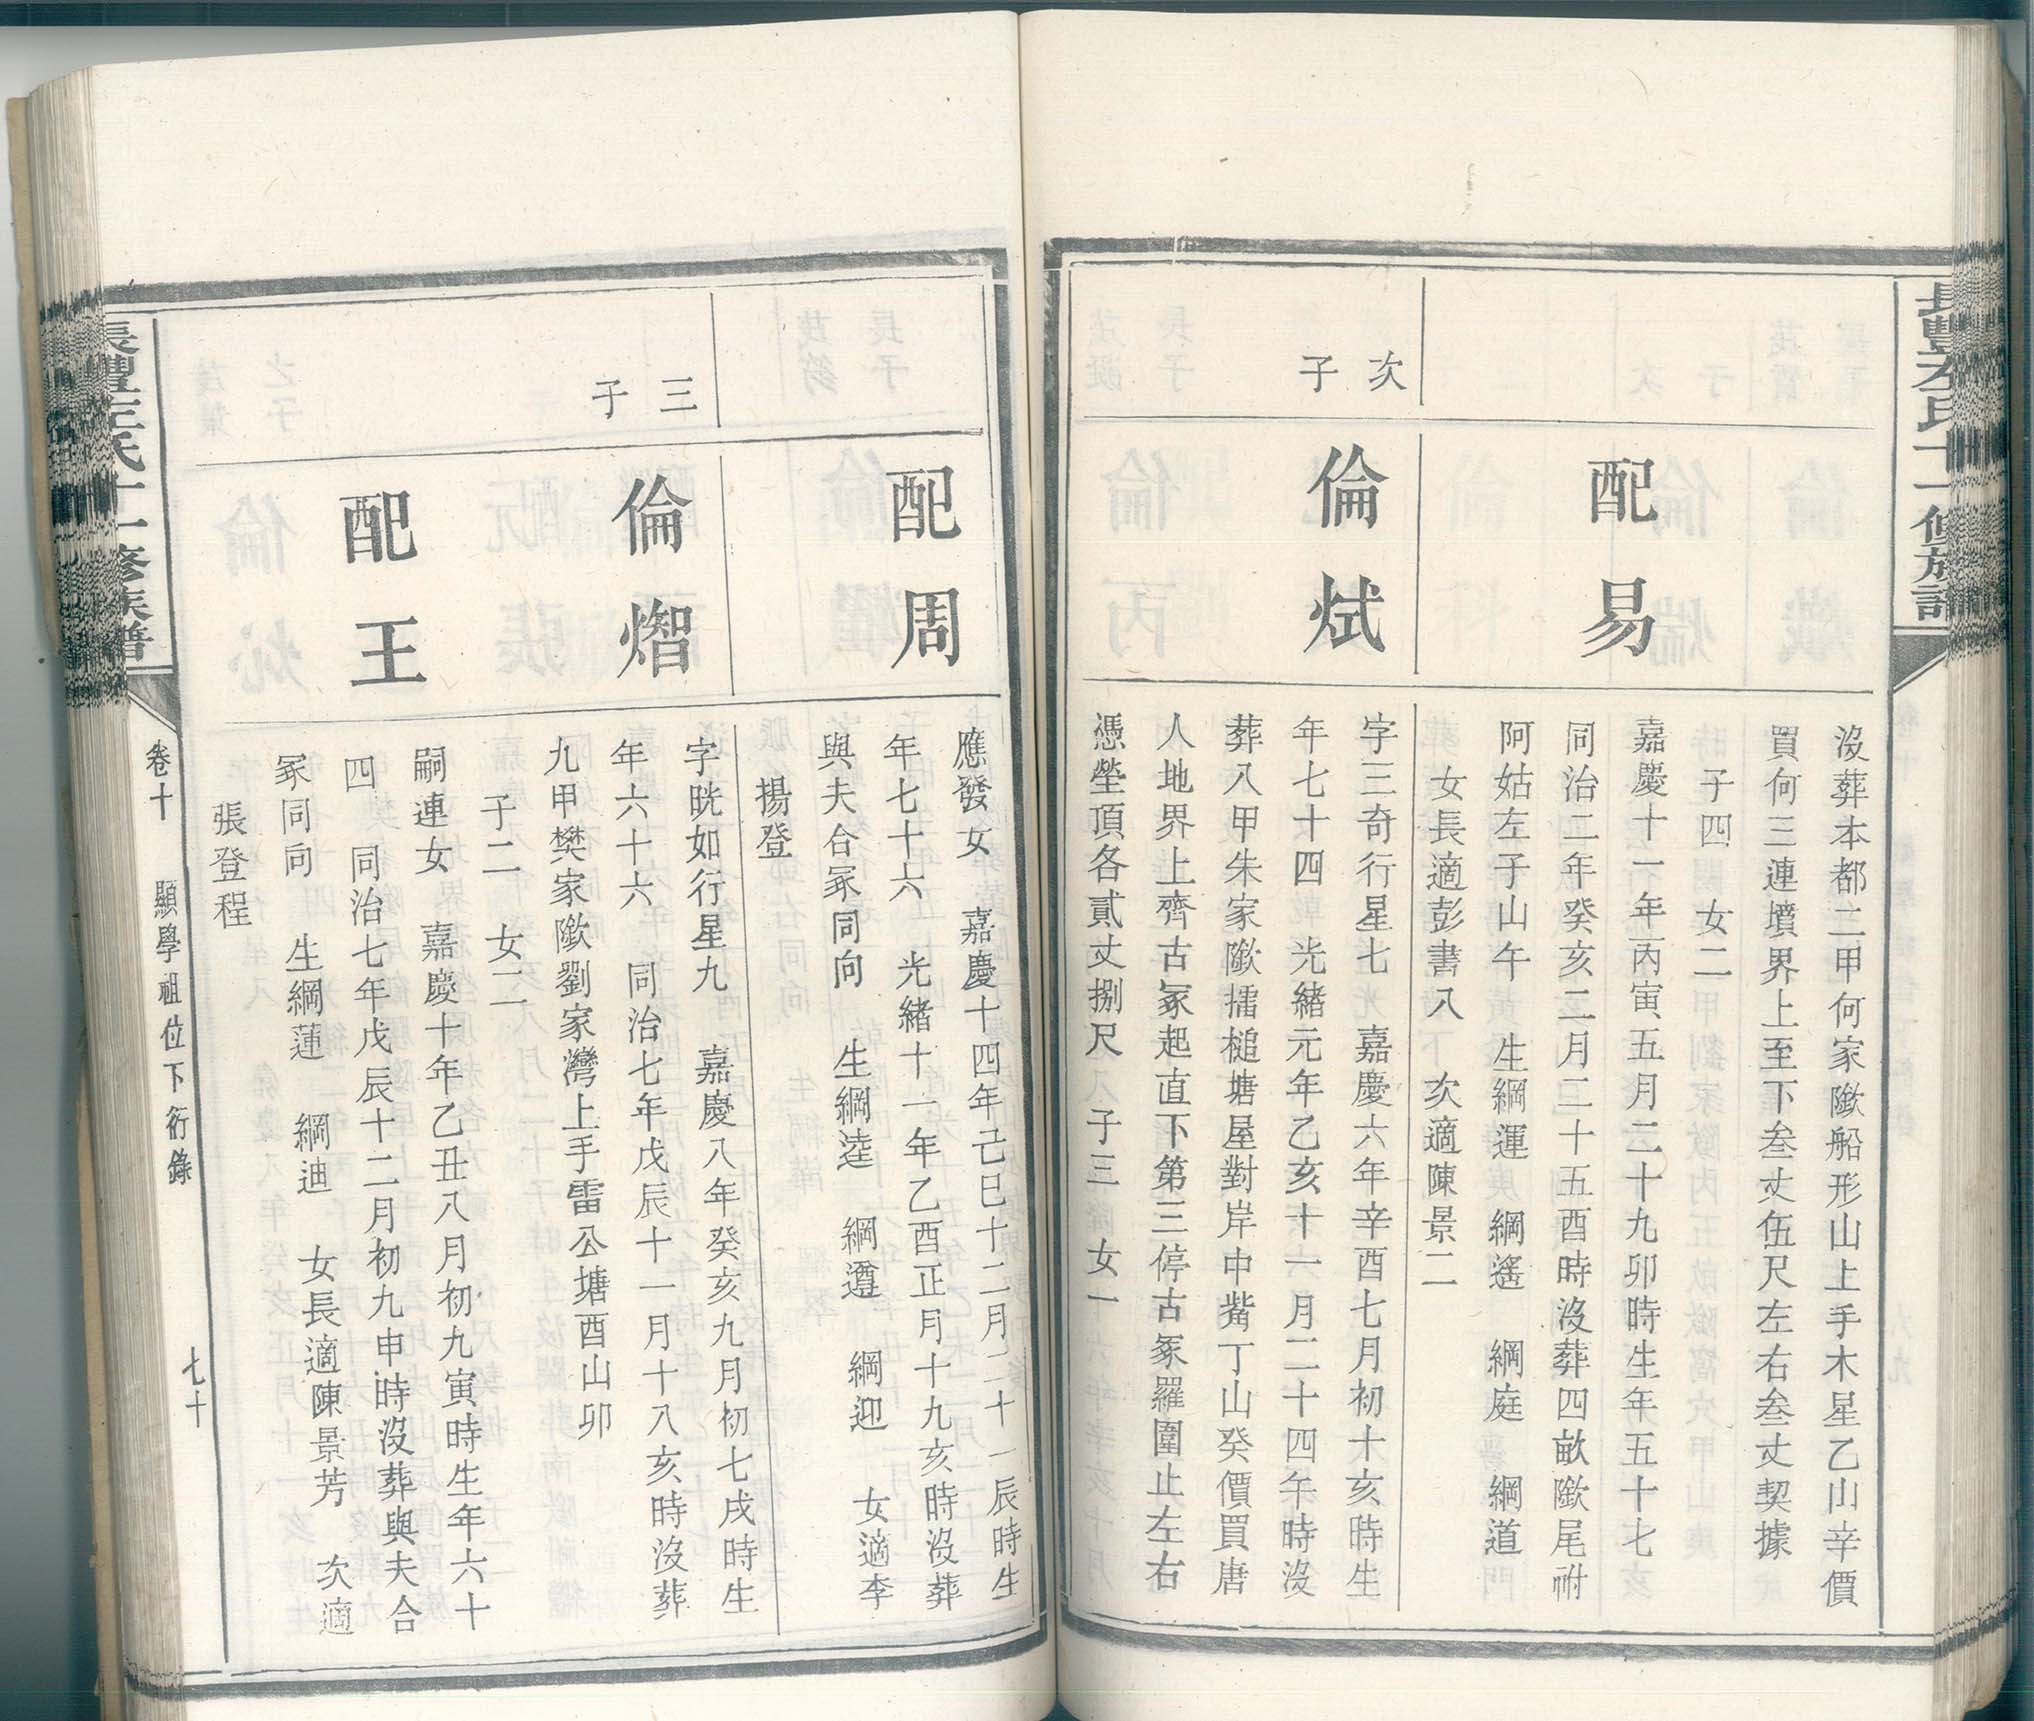 長豐左氏十一修族譜
沒葬本都二甲何家䧟船形山上手木星乙山辛價
買何三連墳界上至下叁丈伍尺左右叁丈契據
子四 女二
配易
嘉慶十一年丙寅五月二十九卯時生年五十七
同治二年癸亥二月二十五酉時沒葬四畝䧟尾祔
阿姑左子山午 生綱運 綱遙 綱庭 綱道
女長適彭書入 次適陳景二
次子
倫烒
字三奇行星七 嘉慶六年辛酉七月初十亥時生
年七十四 光緒元年乙亥十一月二十四午時沒
葬八甲朱家䧟擂槌塘屋對岸中觜丁山癸價買唐
人地界上齊古冢起直下第三停古冢羅圍止左右
憑塋頂各貳丈捌尺 子三 女一
配周
應發女 嘉慶十四年己巳十二月二十一辰時生
年七十六 光緒十一年乙酉正月十九亥時沒葬
與夫合冢同向 生綱逵 綱遵 綱迎 女適李
揚登
三子
倫熠
字晄如行星九 嘉慶八年癸亥九月初七戌時生
年六十六 同治七年戊辰十一月十八亥時沒葬
九甲樊家䧟劉家灣上手雷公塘酉山卯
子二 女二
配王
嗣連女 嘉慶十年乙丑八月初九寅時生年六十
四 同治七年戊辰十二月初九申時沒葬與夫合
冢同向 生綱蓮 綱迪 女長適陳景芳 次適
張登程
長豐左氏十一修族譜
卷十 顯學祖位下衍錄 七十